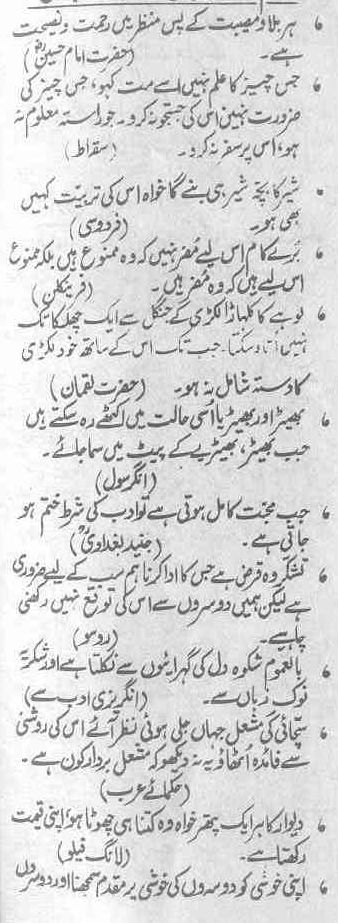 ہر بلا و مصیبت کے پس منظر میں رحمت و نصیحت
ہے۔ (حضرت امام حسینؓ)
جس چیز کا علم نہیں اسے مت کہو، جس چیز کی
ضرورت نہیں اس کی جستجو نہ کرو۔ جو راستہ معلوم نہ
ہو، اس پر سفر نہ کرو۔ (سقراط)
شیر کا بچہ شیر ہی بنے گا خواہ اس کی تربیت کہیں
بھی ہو۔ (فردوسی)
بُرے کام اس لیے مُضر نہیں کہ وہ ممنوع ہیں بلکہ ممنوع
اس لیے ہیں کہ وہ مُضر ہیں۔ (فرینکلن)
لوہے کا کلہاڑا لکڑی کے جنگل سے ایک چھلکا تک
نہیں اتار سکتا۔ جب تک اس کے ساتھ خود لکڑی
کا دستہ شامل نہ ہو۔ (حضرت لقمان)
بھیڑ اور بھیڑیا اسی حالت میں اکٹھے رہ سکتے ہیں
جب بھیڑ، بھیڑیے کے پیٹ میں سما جائے۔
(انگرسول)
جب محبت کامل ہوتی ہے تو ادب کی شرط ختم ہو
جاتی ہے۔ (جنید بغدادیؒ)
تشکر وہ قرض ہے جس کا ادا کرنا ہم سب کے لیے ضروری
ہے لیکن ہمیں دوسروں سے اس کی توقع نہیں رکھنی
چاہیے۔ (روسو)
بالعموم شکوہ دل کی گہرائیوں سے نکلتا ہے اور شکریہ
نوک زباں سے۔ (انگریزی ادب سے)
سچائی کی مشعل جہاں جلی ہوئی نظر آئے اس کی روشنی
سے فائدہ اُٹھاؤ یہ نہ دیکھو کہ مشعل بردار کون ہے۔
(حکمائے عرب)
دیوار کا ہر ایک پتھر خواہ وہ کتنا ہی چھوٹا ہو، اپنی قیمت
رکھتا ہے۔ (لانگ فیلو)
اپنی خوشی کو دوسروں کی خوشی پر مقدم سمجھنا اور دوسروں